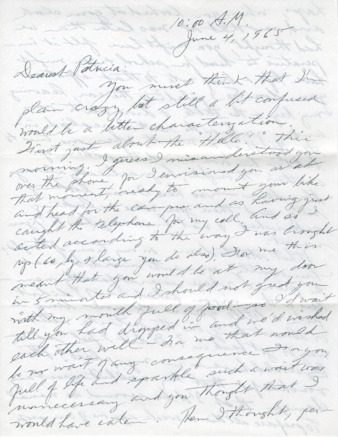 10:00 A.M.
June 4, 1965
Dearest Patricia
You must think that I'm
plain crazy but still a bit confused
would be a better characterization.
First just about the This
morning, I guess I misunderstood you
over the phone for I envisioned you as at
that moment ready to mount your bike
and head for the campus and as having just
caught the telephone for my call and so I
acted according to the way I was brought
up (so, by & large you do also). For me this
meant that you would be at my door
in 5 minutes and I should not greet you
with my mouth full of food — so I'd wait
till you had dropped in and we'd wished
each other well. For me that would
be no wait of any consequence. For you,
full of life and sparkle, such a wait was
unnecessary and you thought that I
would have eaten. Then I thought,